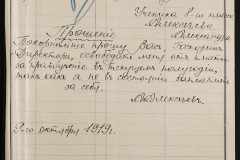 Ученика 8-го класса
Алексеева
Александра
Прошеніе
Покорнѣйше прошу Васъ, Господинъ
Директоръ, освободить меня отъ платы
за правоученіе въ текущемъ полугодіи,
такъ какъ я не въ состояніи заплатить
за себя.
Ал. Алексѣевъ.
9-го октября 1919 г.